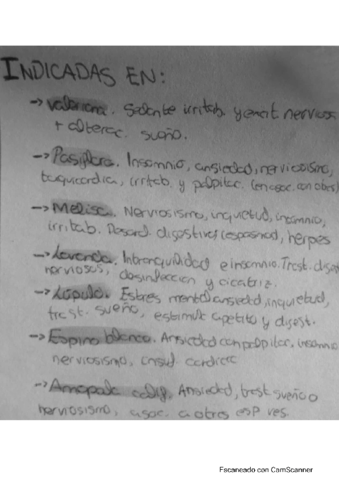 INDICADAS EN:
-> Valeriana. Sedante irritab. y excit. nerviosa
+ alterac. sueño.
-> Pasiflora. Insomnio, ansiedad, nerviosismo,
taquicardia, irritab. y palpitac. (en asoc. con otras)
-> Melisa. Nerviosismo, inquietud, insomnio,
irritab. Desord. digestivos (espasmod), herpes
-> Lavanda. Intranquilidad e insomnio. Trast. digest
nerviosos, desinfeccion y cicatriz.
-> Lúpulo. Estres mental, ansiedad, inquietud,
trast. sueño, estimule apetito y digest.
-> Espino blanco. Ansiedad con palpitac, insomnio
nerviosismo, insuf. cardiac
-> Amapola calif. Ansiedad, trast. sueño o
nerviosismo, asoc. a otras esp ves.
Escaneado con CamScanner